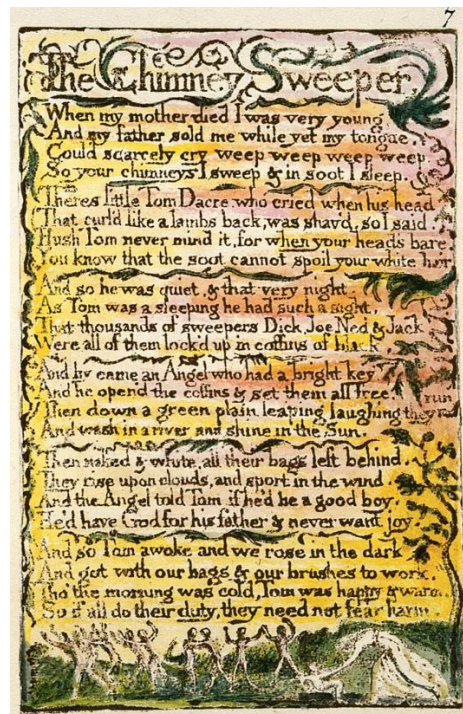 7
The Chimney Sweeper
When my mother died I was very young
And my father sold me while yet my tongue,
Could scarcely cry weep weep weep weep.
So your chimneys I sweep & in soot I sleep.
Theres little Tom Dacre who cried when his head
That curl'd like a lambs back, was shav'd, so I said.
Hush Tom never mind it, for when your heads bare
You know that the soot cannot spoil your white hair
And so he was quiet, & that very night.
As Tom was a sleeping he had such a sight,
That thousands of sweepers Dick, Joe Ned & Jack
Were all of them lock'd up in coffins of black
And by came an Angel who had a bright key
And he open'd the coffins & set them all free.
Then down a green plain leaping laughing they run
And wash in a river and shine in the Sun.
Then naked & white, all their bags left behind.
They rise upon clouds, and sport in the wind
And the Angel told Tom if he'd be a good boy,
He'd have God for his father & never want joy
And so Tom awoke and we rose in the dark
And got with our bags & our brushes to work.
Tho' the morning was cold, Tom was happy & warm.
So if all do their duty, they need not fear harm